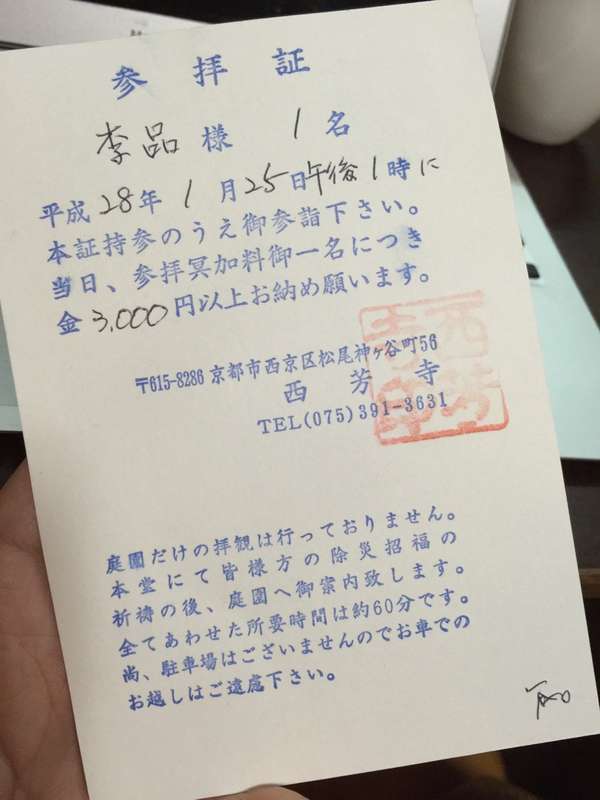 参拝証
李品様 1名
平成28年1月25日午後1時に
本証持参のうえ御参詣下さい。
当日、参拝冥加料御一名につき
金3,000円以上お納め願います。
〒615-8286 京都市西京区松尾神ヶ谷町56
西芳寺
TEL(075)391-3631
庭園だけの拝観は行っておりません。
本堂にて皆様方の除災招福の
祈祷の後、庭園へ御案内致します。
全てあわせた所要時間は約60分です。
尚、駐車場はございませんのでお車での
お越しはご遠慮下さい。